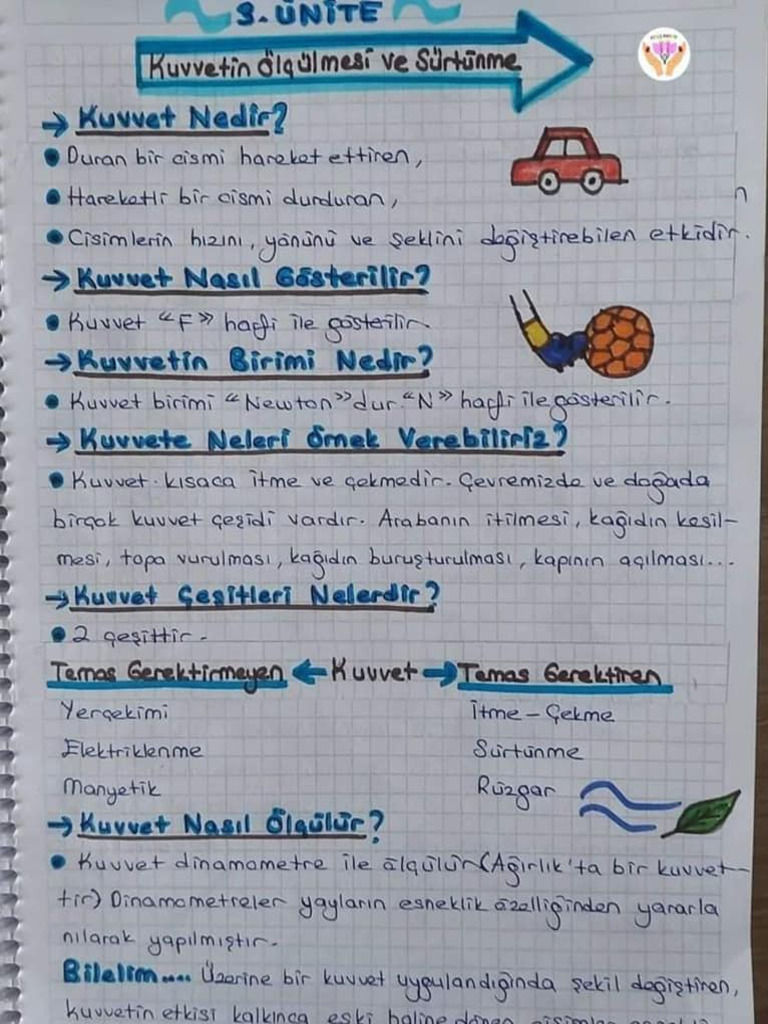 3. ÜNİTE
Kuvvetin Ölçülmesi ve Sürtünme
→ Kuvvet Nedir?
• Duran bir cismi hareket ettiren,
• Hareketli bir cismi durduran,
• Cisimlerin hızını, yönünü ve şeklini değiştirebilen etkidir.
→ Kuvvet Nasıl Gösterilir?
• Kuvvet "F" harfi ile gösterilir.
→ Kuvvetin Birimi Nedir?
• Kuvvet birimi "Newton" dur. "N" harfi ile gösterilir.
→ Kuvvete Neleri Örnek Verebiliriz?
• Kuvvet kısaca itme ve çekmedir. Çevremizde ve doğada
birçok kuvvet çeşidi vardır. Arabanın itilmesi, kağıdın kesil-
mesi, topa vurulması, kağıdın buruşturulması, kapının açılması...
→ Kuvvet Çeşitleri Nelerdir?
• 2 çeşittir.
Temas Gerektirmeyen ← Kuvvet → Temas Gerektiren
Yerçekimi İtme - Çekme
Elektriklenme Sürtünme
Manyetik Rüzgar
→ Kuvvet Nasıl Ölçülür?
• Kuvvet dinamometre ile ölçülür (Ağırlık'ta bir kuvvet-
tir) Dinamometreler yayların esneklik özelliğinden yararla
nılarak yapılmıştır.
Bilelim.... Üzerine bir kuvvet uygulandığında şekil değiştiren,
kuvvetin etkisi kalkınca eski haline dönen cisimler